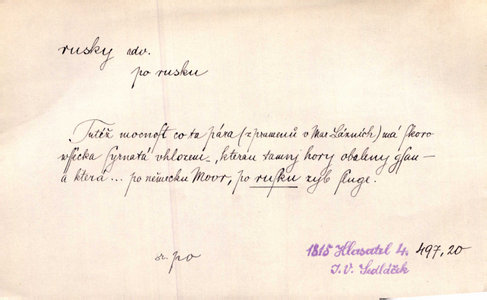 rusky adv.
po rusku
Tutéž mocnost co ta pára (z pramenů v Mar. Lázních) má skoro
wssicka syrnatá vhlozem, kterau tamnj hory obaleny gsau –
a která... po německu Movr, po rusku zyb sluge.
sr. po
1815 Hlasatel 4. 497,20
J. V. Sedláček